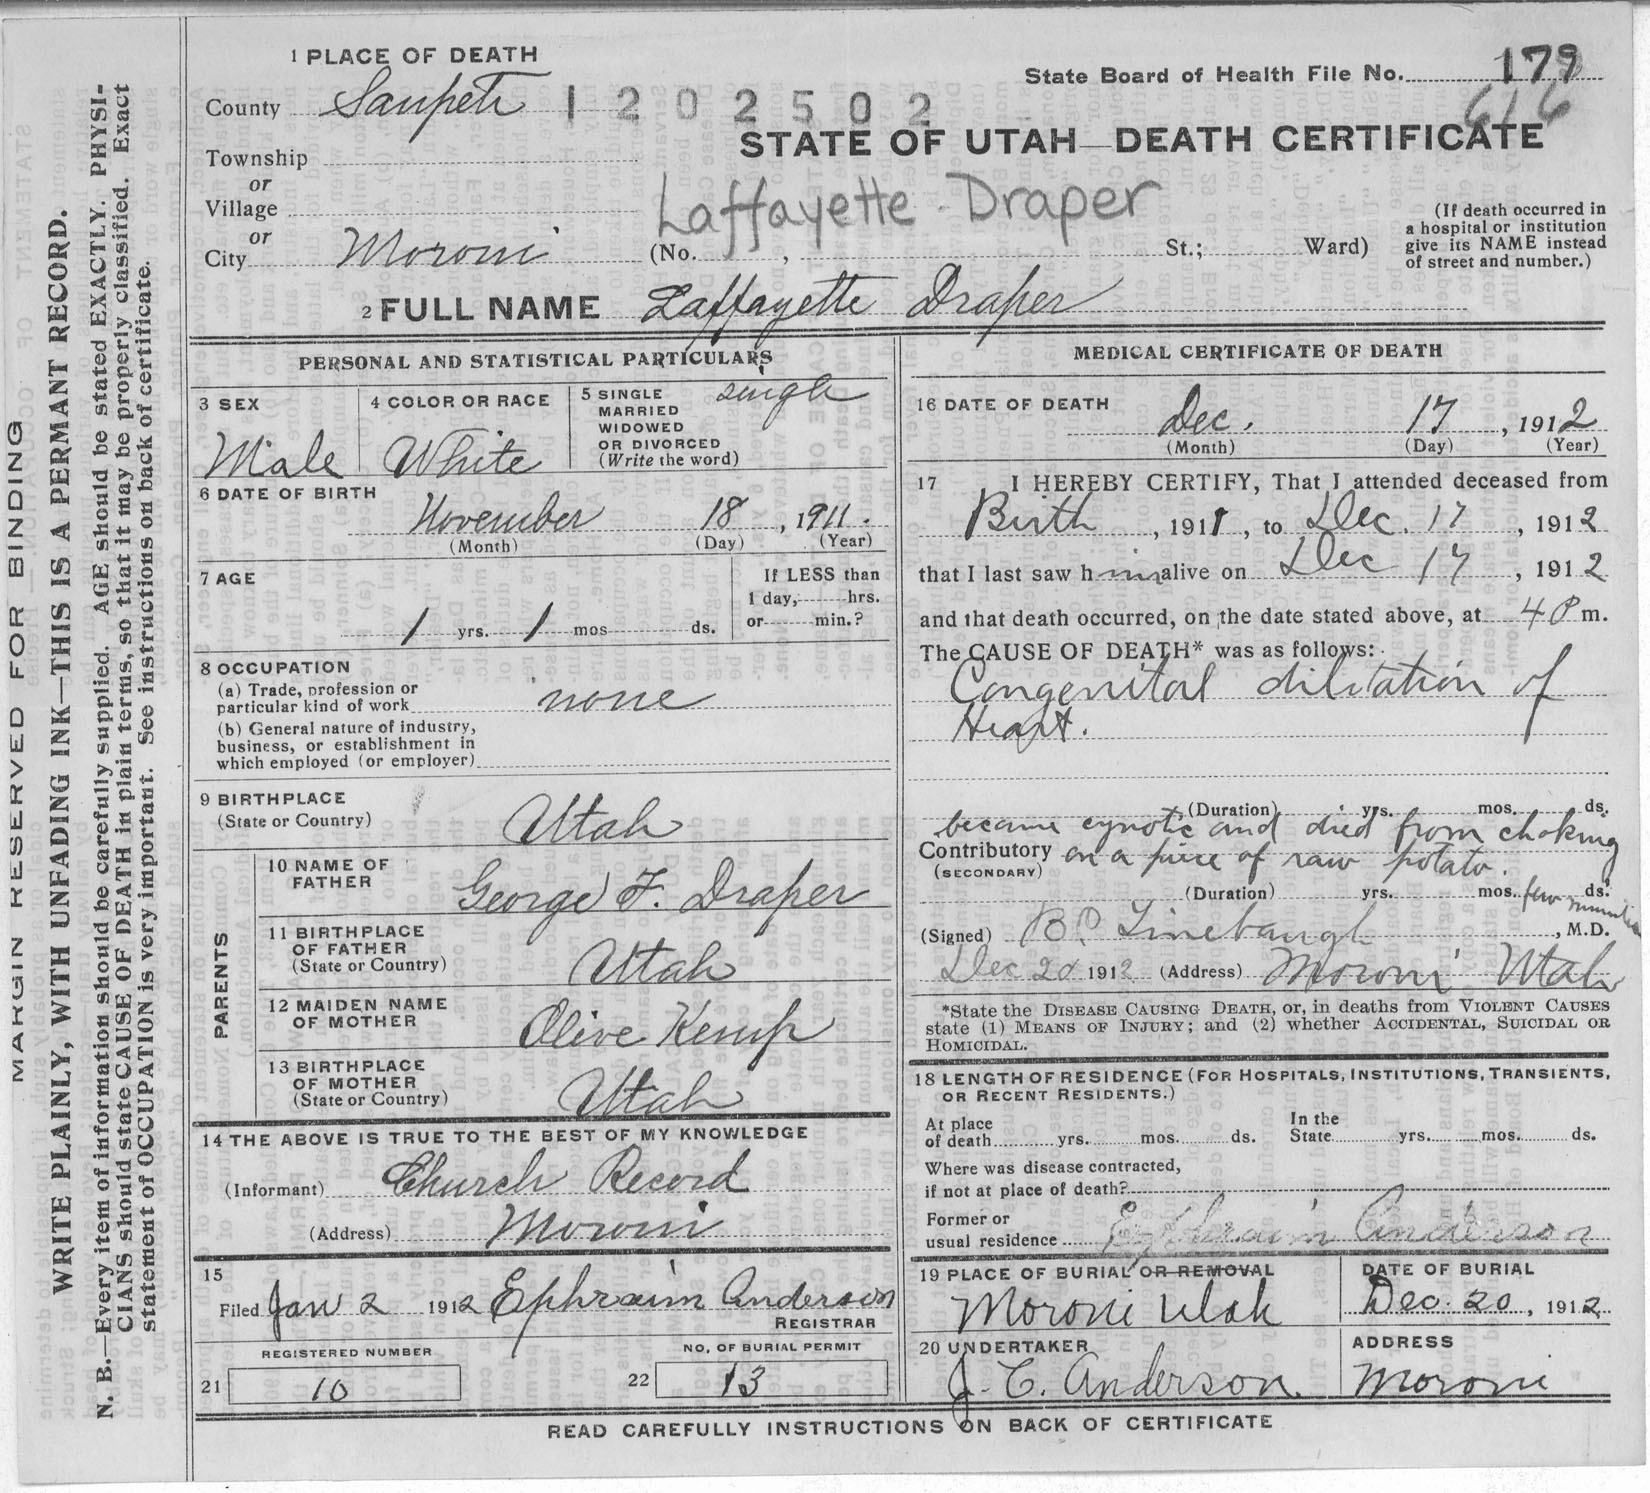 1 PLACE OF DEATH
State Board of Health File No. 179
616
County Sanpete 1202502
STATE OF UTAH—DEATH CERTIFICATE
Township
or
Village
Laffayette Draper
or
City Moroni (No. , St.; Ward)
(If death occurred in
a hospital or institution
give its NAME instead
of street and number.)
2 FULL NAME Laffayette Draper
PERSONAL AND STATISTICAL PARTICULARS
3 SEX
Male
4 COLOR OR RACE
White
5 SINGLE
MARRIED
WIDOWED
OR DIVORCED
(Write the word)
single
6 DATE OF BIRTH
November 18, 1911.
(Month) (Day) (Year)
7 AGE
1 yrs. 1 mos ds.
If LESS than
1 day, hrs.
or min.?
8 OCCUPATION
(a) Trade, profession or
particular kind of work none
(b) General nature of industry,
business, or establishment in
which employed (or employer)
9 BIRTHPLACE
(State or Country) Utah
PARENTS
10 NAME OF
FATHER George F. Draper
11 BIRTHPLACE
OF FATHER
(State or Country) Utah
12 MAIDEN NAME
OF MOTHER Olive Kemp
13 BIRTHPLACE
OF MOTHER
(State or Country) Utah
14 THE ABOVE IS TRUE TO THE BEST OF MY KNOWLEDGE
(Informant) Church Record
(Address) Moroni
15
Filed Jan 2 1912 Ephraim Anderson
REGISTRAR
REGISTERED NUMBER
21 10
NO. OF BURIAL PERMIT
22 13
MEDICAL CERTIFICATE OF DEATH
16 DATE OF DEATH
Dec. 17, 1912
(Month) (Day) (Year)
17 I HEREBY CERTIFY, That I attended deceased from
Birth, 1911, to Dec. 17, 1912
that I last saw him alive on Dec 17, 1912
and that death occurred, on the date stated above, at 4 P m.
The CAUSE OF DEATH* was as follows:
Congenital dilitation of
Heart.
(Duration) yrs. mos. ds.
became cynotic and died from choking
Contributory on a piece of raw potato.
(SECONDARY)
(Duration) yrs. mos. few ds. minutes
(Signed) B.P. Linebaugh, M.D.
Dec 20 1912 (Address) Moroni Utah
*State the DISEASE CAUSING DEATH, or, in deaths from VIOLENT CAUSES
state (1) MEANS OF INJURY; and (2) whether ACCIDENTAL, SUICIDAL OR
HOMICIDAL.
18 LENGTH OF RESIDENCE (FOR HOSPITALS, INSTITUTIONS, TRANSIENTS,
OR RECENT RESIDENTS.)
At place
of death yrs. mos. ds.
In the
State yrs. mos. ds.
Where was disease contracted,
if not at place of death?
Former or
usual residence Ephraim Anderson
19 PLACE OF BURIAL OR REMOVAL
Moroni Utah
DATE OF BURIAL
Dec. 20, 1912
20 UNDERTAKER
J. C. Anderson
ADDRESS
Moroni
READ CAREFULLY INSTRUCTIONS ON BACK OF CERTIFICATE
MARGIN RESERVED FOR BINDING
WRITE PLAINLY, WITH UNFADING INK—THIS IS A PERMANT RECORD.
N. B.—Every item of information should be carefully supplied. AGE should be stated EXACTLY. PHYSI-
CIANS should state CAUSE OF DEATH in plain terms, so that it may be properly classified. Exact
statement of OCCUPATION is very important. See instructions on back of certificate.